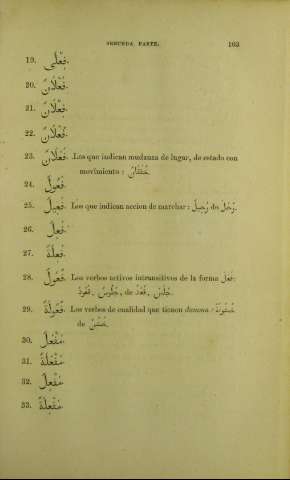 SEGUNDA PARTE. 163
19. فِعْلَى.
20. فَعْلَانٌ.
21. فِعْلَانٌ.
22. فُعْلَانٌ.
23. فَعَلَانٌ. Los que indican mudanza de lugar, de estado con
movimiento: خَفَقَانٌ.
24. فَعُولٌ.
25. فَعِيلٌ. Los que indican accion de marchar: رَحِيلٌ de رَحَلَ.
26. فَعِلٌ.
27. فَعِلَةٌ.
28. فُعُولٌ. Los verbos activos intransitivos de la forma فَعَلَ:
قُعُودٌ, جُلُوسٌ, de قَعَدَ, جَلَسَ.
29. فُعُولَةٌ. Los verbos de cualidad que tienen damma: خُشُونَةٌ
de خَشُنَ.
30. مَفْعَلٌ.
31. مَفْعَلَةٌ.
32. مَفْعِلٌ.
33. مَفْعِلَةٌ.